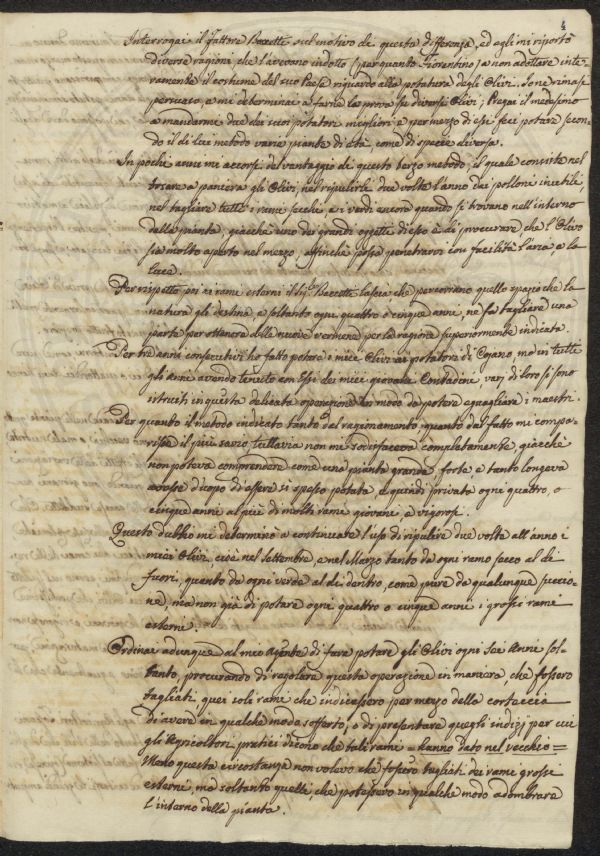 4
Interrogai il Fattore Bacetti sul motivo di questa differenza, ed egli mi riportò
diverse ragioni che l'avevano indotto (per quanto Fiorentino) a non adottare inte-
ramente il costume del suo Paese riguardo alla potatura degli Olivi. Io ne rimasi
persuaso, e mi determinai a farne la prova su diversi Olivi; Pregai il medesimo
a mandarmi due dei suoi potatori migliori e per mezzo di essi feci potare secon-
do il di lui metodo varie piante di età, come di specie diversa.
In pochi anni mi accorsi del vantaggio di questo terzo metodo il quale consiste nel
tosare a paniera gli Olivi, nel ripulirli due volte l'anno dai polloni inutili,
nel tagliare tutti i rami secchi, e i verdi ancora quando si trovano nell'interno
della pianta, giacchè uno dei grandi oggetti di esso è di procurare che l'Olivo
sia molto aperto nel mezzo, affinchè possa penetrarvi con facilità l'aria, e la
luce.
Per rispetto poi ai rami esterni il Sig.e Bacetti lascia che percorrano quello spazio che la
natura gli destina, e soltanto ogni quattro o cinque anni, ne fa tagliare una
parte per ottenere delle nuove vermene per la ragione superiormente indicata.
Per tre anni consecutivi ho fatto potare i miei Olivi ai potatori di Cojano, ma in tutti
gli anni avendo tenuto con Essi dei miei giovani Contadini, vari di loro si sono
istruiti in questa delicata operazione in modo da potere eguagliare i maestri.
Per quanto il metodo indicato tanto dal ragionamento quanto dal fatto mi compa-
risse il più savio tuttavia non mi sodisfaceva completamente, giacchè
non poteva comprendere come una pianta grande, forte, e tanto longeva
avesse d'uopo di essere sì spesso potata, e quindi privata ogni quattro, o
cinque anni al più di molti rami giovani e vigorosi.
Questo dubbio mi determinò a continuare l'uso di ripulire due volte all'anno i
miei Olivi, cioè nel Settembre, e nel Marzo tanto da ogni ramo secco al di
fuori, quanto da ogni verde al di dentro, come pure da qualunque succio-
ne, ma non già di potare ogni quattro o cinque anni i grossi rami
esterni.
Ordinai adunque al mio Agente di fare potare gli Olivi ogni sei Anni sol-
tanto, procurando di regolare questa operazione in maniera, che fossero
tagliati quei soli rami che indicassero per mezzo della corteccia
di avere in qualche modo sofferto, o di presentare quegli indizj per cui
gli Agricoltori pratici dicono che tali rami = hanno dato nel vecchio =
Meno questa circostanza non volevo che fossero tagliati dei rami grossi
esterni, ma soltanto quelli, che potessero in qualche modo adombrare
l'interno della pianta.